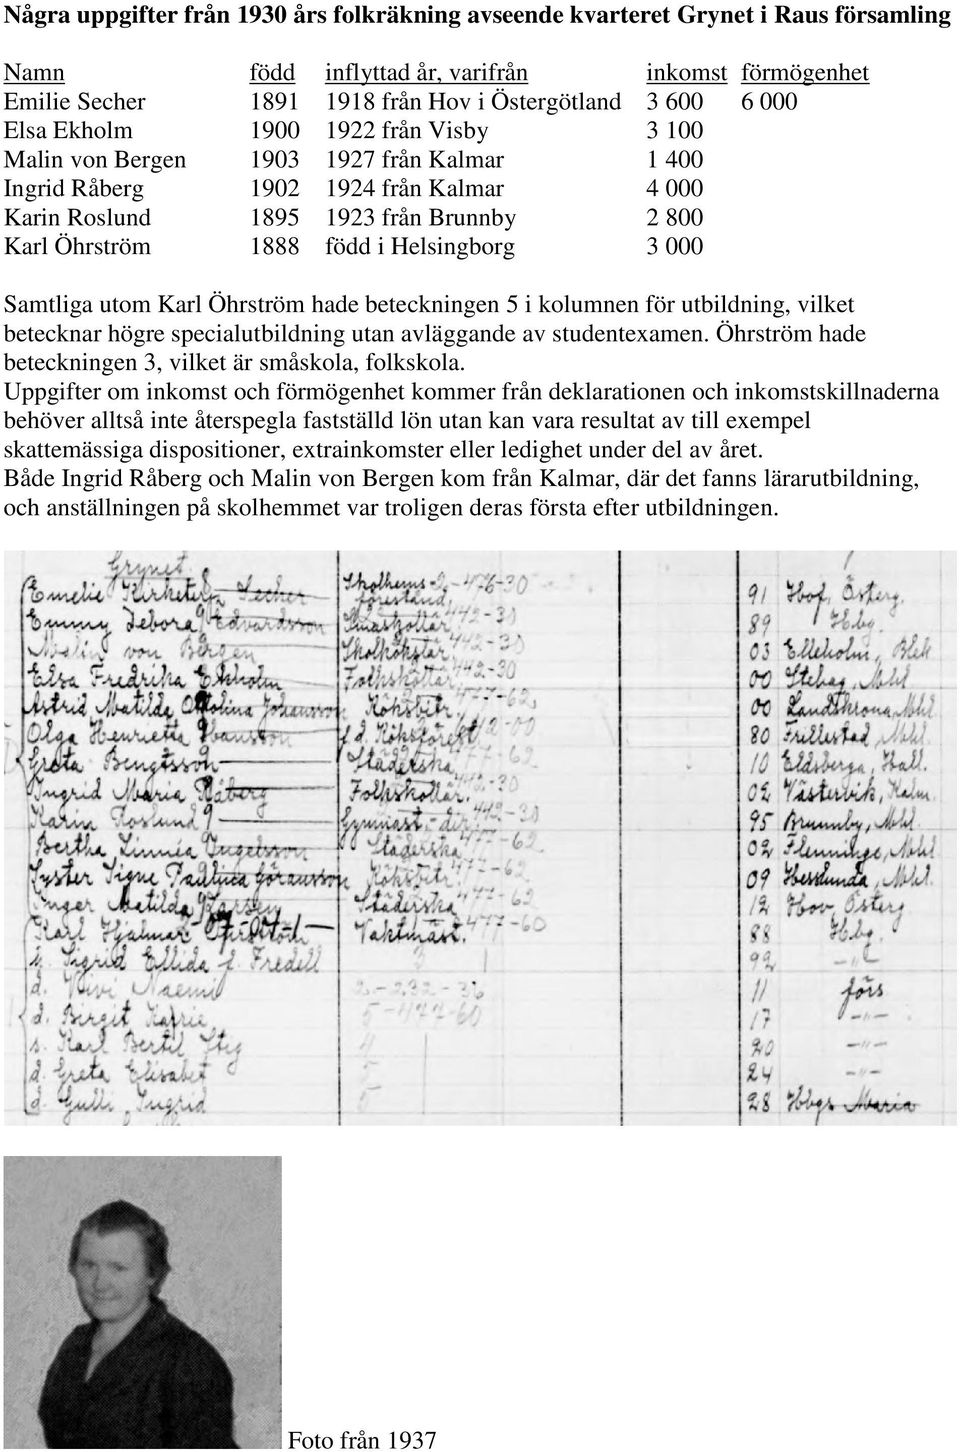 Några uppgifter från 1930 års folkräkning avseende kvarteret Grynet i Raus församling
Namn född inflyttad år, varifrån inkomst förmögenhet
Emilie Secher 1891 1918 från Hov i Östergötland 3 600 6 000
Elsa Ekholm 1900 1922 från Visby 3 100
Malin von Bergen 1903 1927 från Kalmar 1 400
Ingrid Råberg 1902 1924 från Kalmar 4 000
Karin Roslund 1895 1923 från Brunnby 2 800
Karl Öhrström 1888 född i Helsingborg 3 000
Samtliga utom Karl Öhrström hade beteckningen 5 i kolumnen för utbildning, vilket
betecknar högre specialutbildning utan avläggande av studentexamen. Öhrström hade
beteckningen 3, vilket är småskola, folkskola.
Uppgifter om inkomst och förmögenhet kommer från deklarationen och inkomstskillnaderna
behöver alltså inte återspegla fastställd lön utan kan vara resultat av till exempel
skattemässiga dispositioner, extrainkomster eller ledighet under del av året.
Både Ingrid Råberg och Malin von Bergen kom från Kalmar, där det fanns lärarutbildning,
och anställningen på skolhemmet var troligen deras första efter utbildningen.
Grynet.
Emelie Secher Skolhems- 2-476-30 91 Hof, Österg.
föreständ.
Emmy Debora Edvardsson Småskollär. 442-30 89 Hbg.
Malin von Bergen Skolkökslär. 442-30 03 Elleholm, Blek
Elsa Fredrika Ekholm Folkskollär. 442-30 00
Astrid Matilda Ottolina Johansson Köksbitr. 477-62 00 Landskrona, Mhl.
Olga Henrietta Hansson f.d. Köksförest. 442-00 80 Frillestad, Mhl.
Greta Bengtsson Städerska 477-62 10 Eldsberga, Hall.
Ingrid Maria Råberg Folkskollär. 442-30 02 Västervik, Kalm.
Karin Roslund Gymnast.-dir. 442-30 95 Brunnby, Mhl.
Bertha Linnéa Ingelsson Städerska 477-62 02 Flenninge, Mhl.
Signe Paulina Göransson Köksbitr. 477-62 09 Hesslunda, Mhl.
Inger Matilda Larsen Städerska 477-62 12 Hov, Österg.
Karl Hjalmar Öhrström Vaktmäst. 477-60 88 Hbg.
Sigrid Ellida f. Fredell 3 92 -"-
d. Vivi Naemi 2-232-36 11 förs
d. Birgit Karrie 5-477-60 17 -"-
s. Karl Bertil Stig 4 20 -"-
d. Greta Elisabet 5 24 -"-
d. Gulli Ingrid 5 28 Hbgs Maria
Foto från 1937